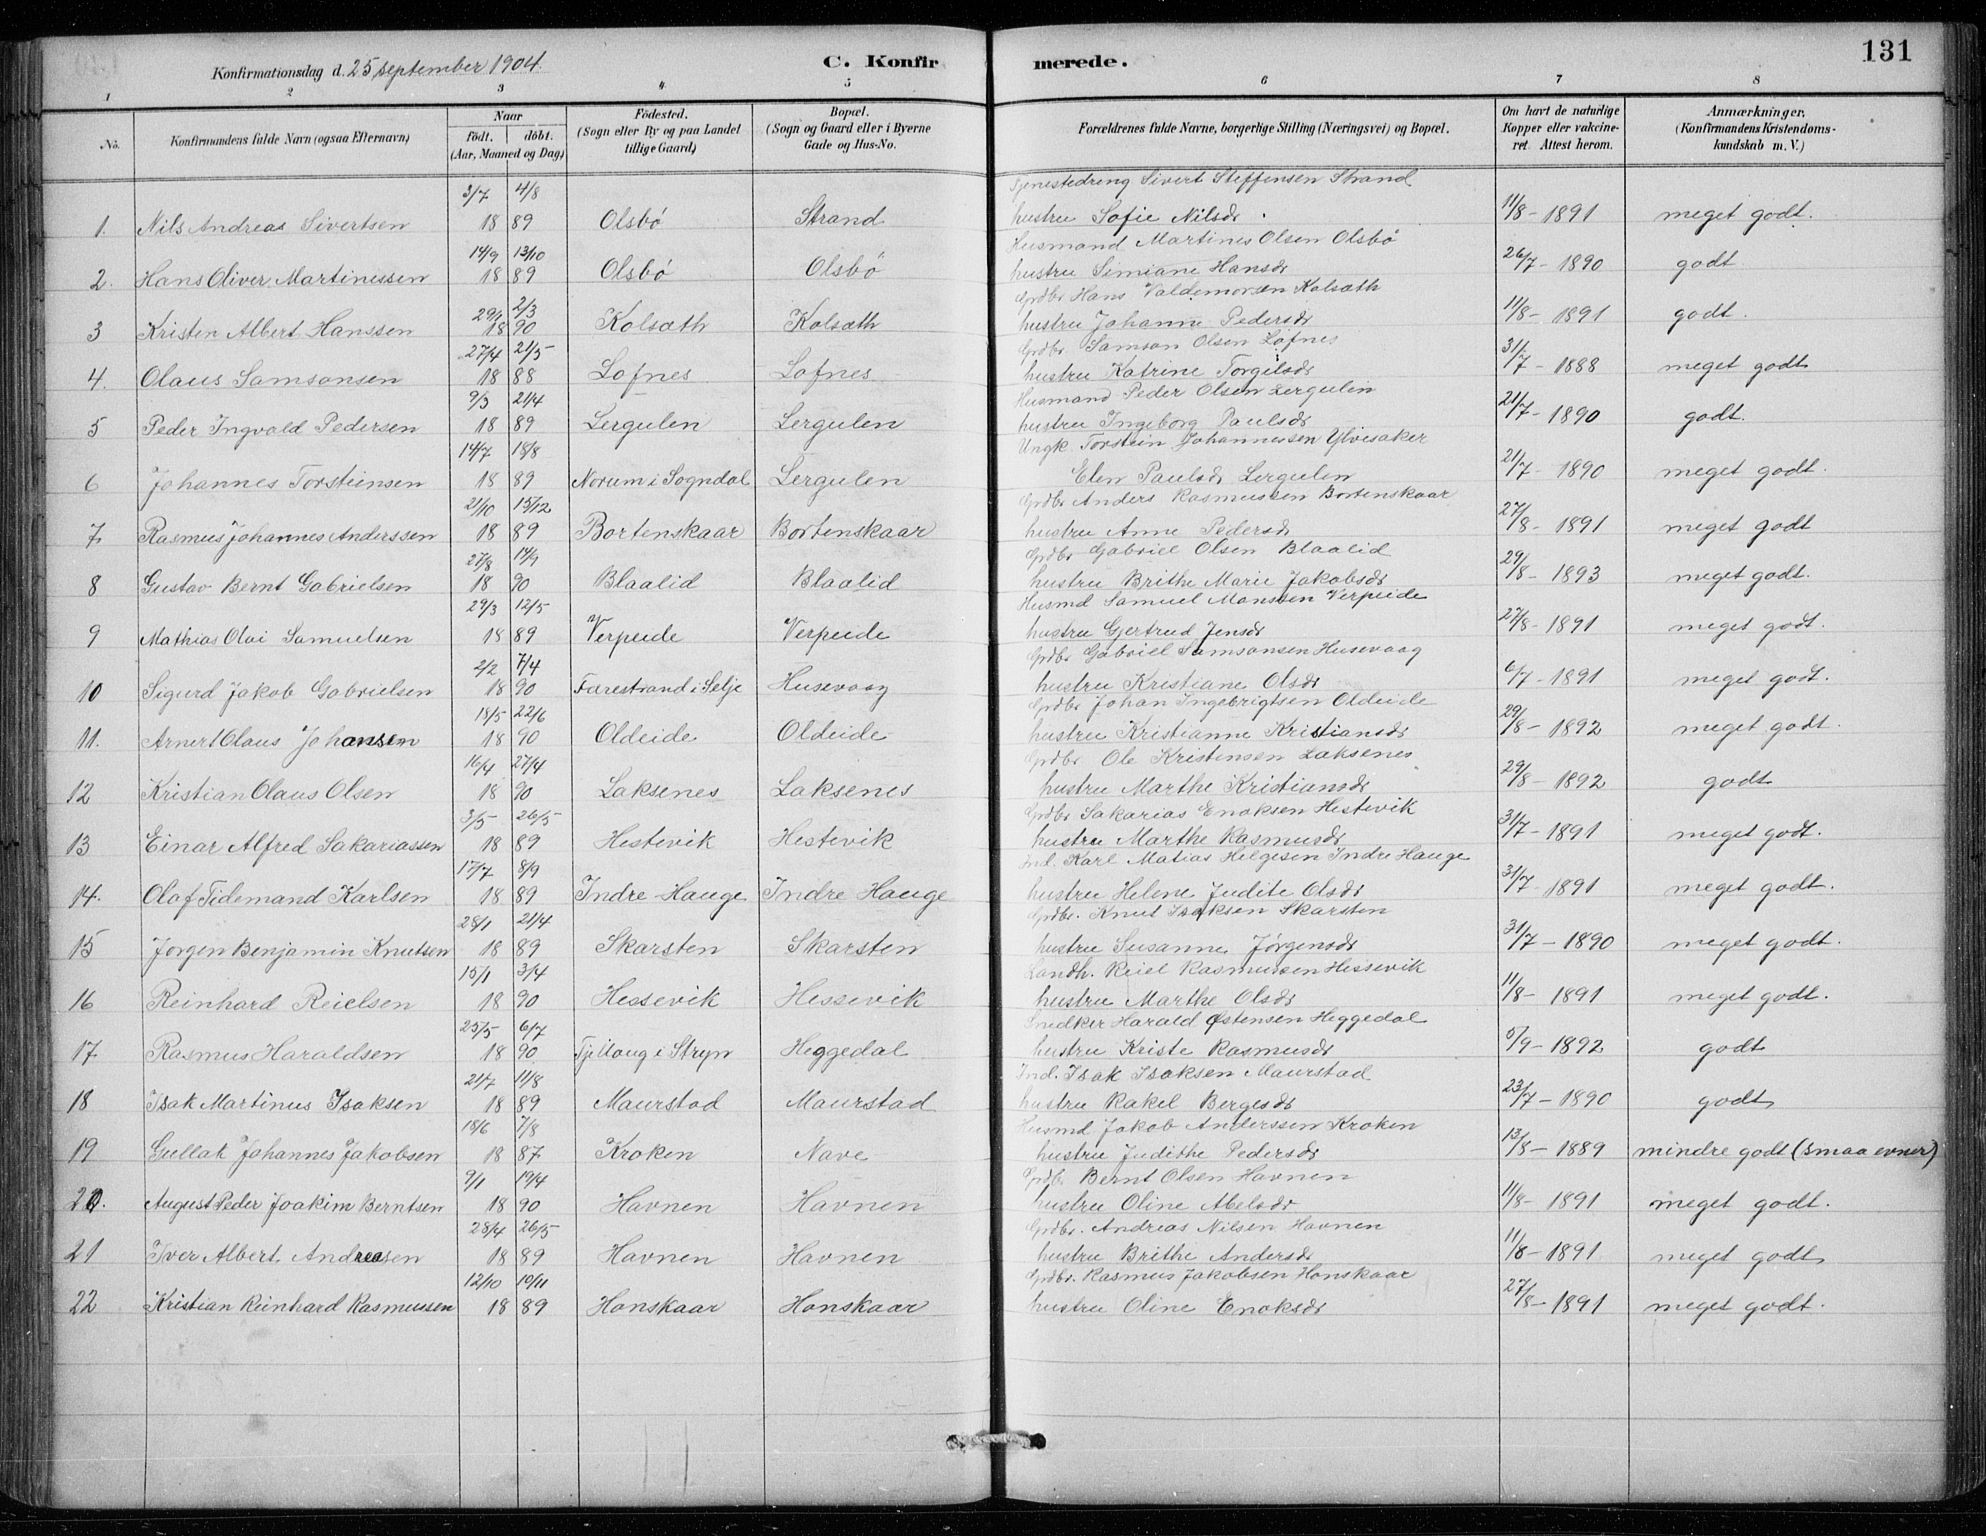 131
Konfirmationsdag d. 25 september 1904.
C. Konfirmerede.
1 2 3 4 5 6 7 8
No. | Konfirmandens fulde Navn (ogsaa Efternavn) | Naar födt. döbt. (Aar, Maaned og Dag) | Födested. (Sogn eller By og paa Landet tillige Gaard) | Bopæl. (Sogn og Gaard eller i Byerne Gade og Hus-No. | Forældrenes fulde Navne, borgerlige Stilling (Næringsvei) og Bopæl. | Om havt de naturlige Kopper eller vakcineret. Attest herom. | Anmærkninger, (Konfirmandens Kristendomskundskab m. V.)
3/7 4/8 Tjenestedreng Sivert Steffensen Strand
1. Nils Andreas Sivertsen 18 89 Olsbö Strand hustru Sofie Nilsdr. 11/8 - 1891 meget godt.
14/9 13/10 Husmand Martines Olsen Olsbö
2. Hans Oliver Martinussen 18 89 Olsbö Olsbö hustru Simiane Hansdr 26/7 - 1890 godt
29/1 2/3 Grdbr Hans Valdemorsen Kolsæth
3 Kristen Albert Hanssen 18 90 Kolsæth Kolsæth hustru Johanne Pedersdr 11/8 - 1891 godt.
27/4 21/5 Grdbr Samson Olsen Lofnes
4. Olaus Samsonsen 18 88 Lofnes Lofnes hustru Katrine Torgilsdr 31/7 - 1888 meget godt
9/3 21/4 Husmand Peder Olsen Lergulen
5 Peder Ingvald Pedersen 18 89 Lergulen Lergulen hustru Ingeborg Paulsdr 21/7 - 1890 godt.
14/7 18/8 Ungk Torstein Johannessen Ylvisaker
6 Johannes Torsteinsen 18 89 Norum i Sogndal Lergulen Elen Paulsdr Lergulen 21/7 - 1890 meget godt.
21/10 15/12 Grdbr Anders Rasmussen Bortenskaar
7. Rasmus Johannes Anderssen 18 89 Bortenskaar Bortenskaar hustru Anne Pedersdr 27/8 - 1891 meget godt
27/8 14/9 Grdbr Gabriel Olsen Blaalid
8 Gustav Bernt Gabrielsen 18 90 Blaalid Blaalid hustru Brithe Marie Jakobsdr 29/8 - 1893 meget godt.
29/3 12/5 Husmd Samuel Monssen Verpeide
9 Mathias Olai Samuelsen 18 89 Verpeide Verpeide hustru Gjertrud Jensdr 27/8 - 1891 meget godt.
2/2 7/4 Grdbr Gabriel Samsonsen Husevaag
10 Sigurd Jakob Gabrielsen 18 90 Farestrand i Selje Husevaag hustru Kristiane Olsdr 6/7 - 1891 meget godt.
18/5 22/6 Grdbr Johan Ingebrigtsen Oldeide
11. Arnert Olaus Johansen 18 90 Oldeide Oldeide hustru Kristianne Kristiansdr 29/8 - 1892 meget godt.
16/4 27/4 Grdbr Ole Kristensen Laksenes
12 Kristian Olaus Olsen 18 90 Laksenes Laksenes hustru Marthe Kristiansdr 29/8 - 1892 godt
3/5 26/5 Grdbr Sakarias Enoksen Hestevik
13 Einar Alfred Sakariassen 18 89 Hestevik Hestevik hustru Marthe Rasmusdr 31/7 - 1891 meget godt.
17/7 8/9 Ind. Karl Matias Helgesen Indre Hauge
14. Olaf Tidemand Karlsen 18 89 Indre Hauge Indre Hauge hustru Helene Judite Olsdr 31/7 - 1891 meget godt.
28/1 21/4 Grdbr. Knut Isaksen Skarsten
15 Jörgen Benjamin Knutsen 18 89 Skarsten Skarsten hustru Susanne Jörgensdr 31/7 - 1890 meget godt.
15/1 3/4 Landh. Reiel Rasmussen Hessevik
16 Reinhard Reielsen 18 90 Hessevik Hessevik hustru Marthe Olsdr 11/8 - 1891 meget godt.
25/5 6/7 Snedker Harald Østensen Heggedal
17 Rasmus Haraldsen 18 90 Tjellaug i Stryn Heggedal hustru Kriste Rasmusdr 5/9 - 1892 godt
21/7 11/8 Ind. Isak Isaksen Maurstad
18 Isak Martinus Isaksen 18 89 Maurstad Maurstad hustru Rakel Bergesdr 23/7 - 1890 godt
18/6 7/8 Husmd Jakob Anderssen Kroken
19 Gullak Johannes Jakobsen 18 87 Kroken Nave hustru Judithe Pedersdr 13/8 - 1889 mindre godt (smaa evner)
9/1 19/4 Grdbr Bernt Olsen Havnen
20. August Peder Joakim Berntsen 18 90 Havnen Havnen hustru Oline Abelsdr 11/8 - 1891 meget godt.
28/4 26/5 Grdbr. Andreas Nilsen Havnen
21 Iver Albert Andreasen 18 89 Havnen Havnen hustru Brithe Andersdr 11/8 - 1891 meget godt
12/10 10/11 Grdbr. Rasmus Jakobsen Honskaar
22 Kristian Reinhard Rasmussen 18 89 Honskaar Honskaar hustru Oline Enoksdr 27/8 - 1891 meget godt.